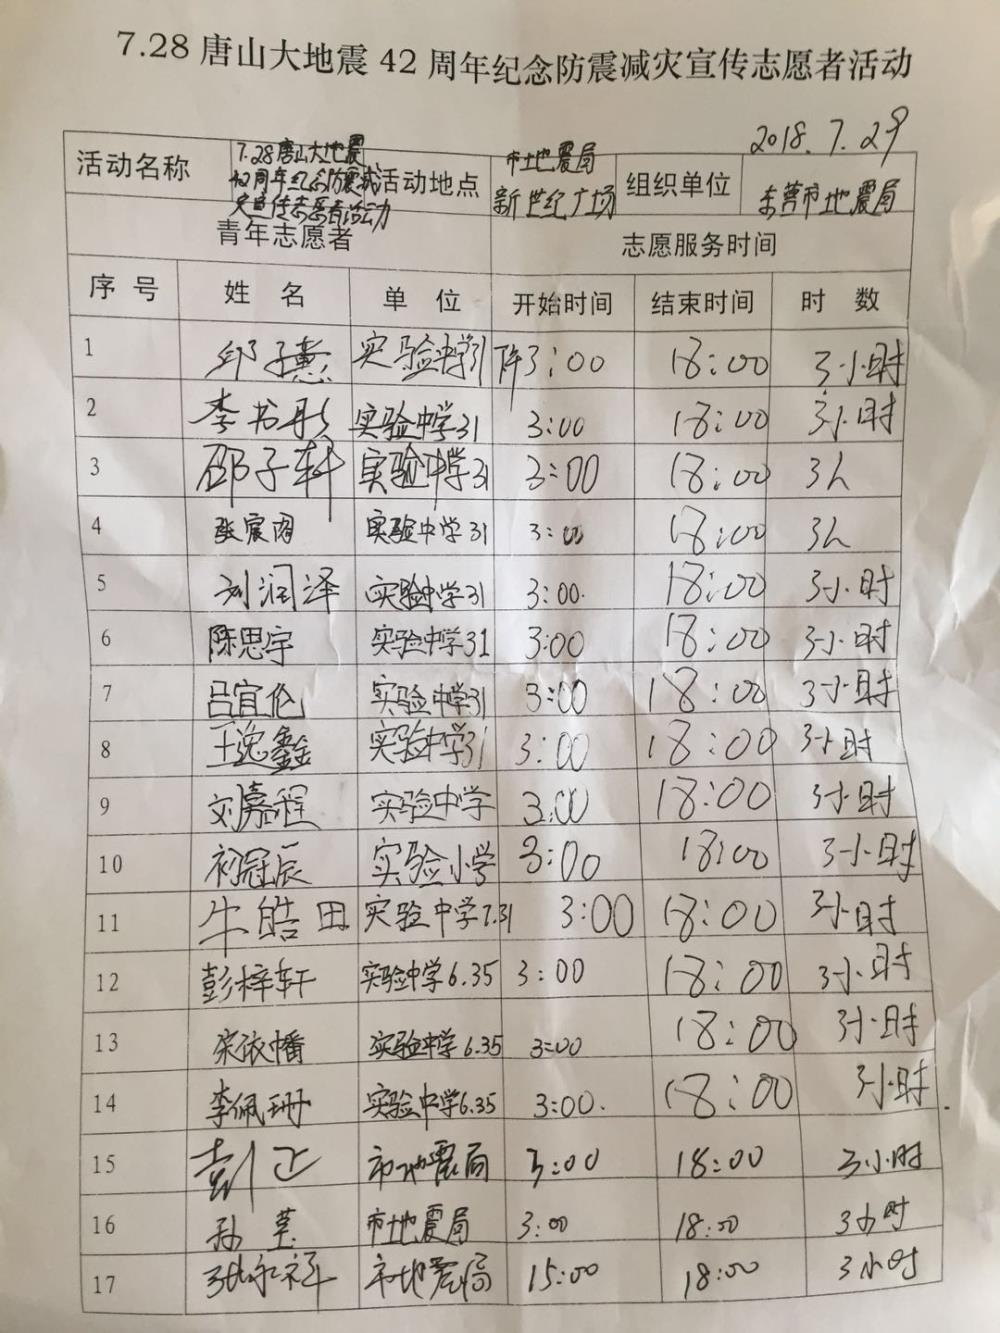 7.28 唐山大地震 42 周年纪念防震减灾宣传志愿者活动
2018.7.29
活动名称 7.28唐山大地震42周年纪念防震减灾宣传志愿者活动 活动地点 市地震局新世纪广场 组织单位 东营市地震局
青年志愿者 志愿服务时间
序号 姓名 单位 开始时间 结束时间 时数
1 邱子熏 实验中学31 下午3:00 18:00 3小时
2 李书彤 实验中学31 3:00 18:00 3小时
3 邵子轩 实验中学31 3:00 18:00 3h
4 张宸 实验中学31 3:00 18:00 3h
5 刘润泽 实验中学31 3:00. 18:00 3小时
6 陈思宇 实验中学31 3:00 18:00 3小时
7 吕宜伦 实验中学31 3:00 18:00 3小时
8 王逸鑫 实验中学31 3:00 18:00 3小时
9 刘嘉程 实验中学 3:00 18:00 3小时
10 初冠辰 实验小学 3:00 18:00 3小时
11 牛皓田 实验中学7.31 3:00 18:00 3小时
12 彭梓轩 实验中学6.35 3:00 18:00 3小时
13 依幡 实验中学6.35 3:00 18:00 3小时
14 李佩珊 实验中学6.35 3:00. 18:00 3小时.
15 彭正 市地震局 3:00 18:00 3小时
16 孙 市地震局 3:00 18:00 3小时
17 张永祥 市地震局 15:00 18:00 3小时